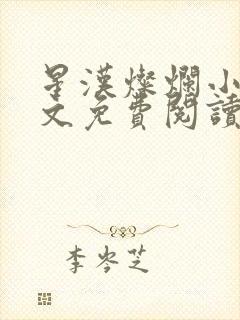 星漢燦爛小
文免費閱讀
李岑芝